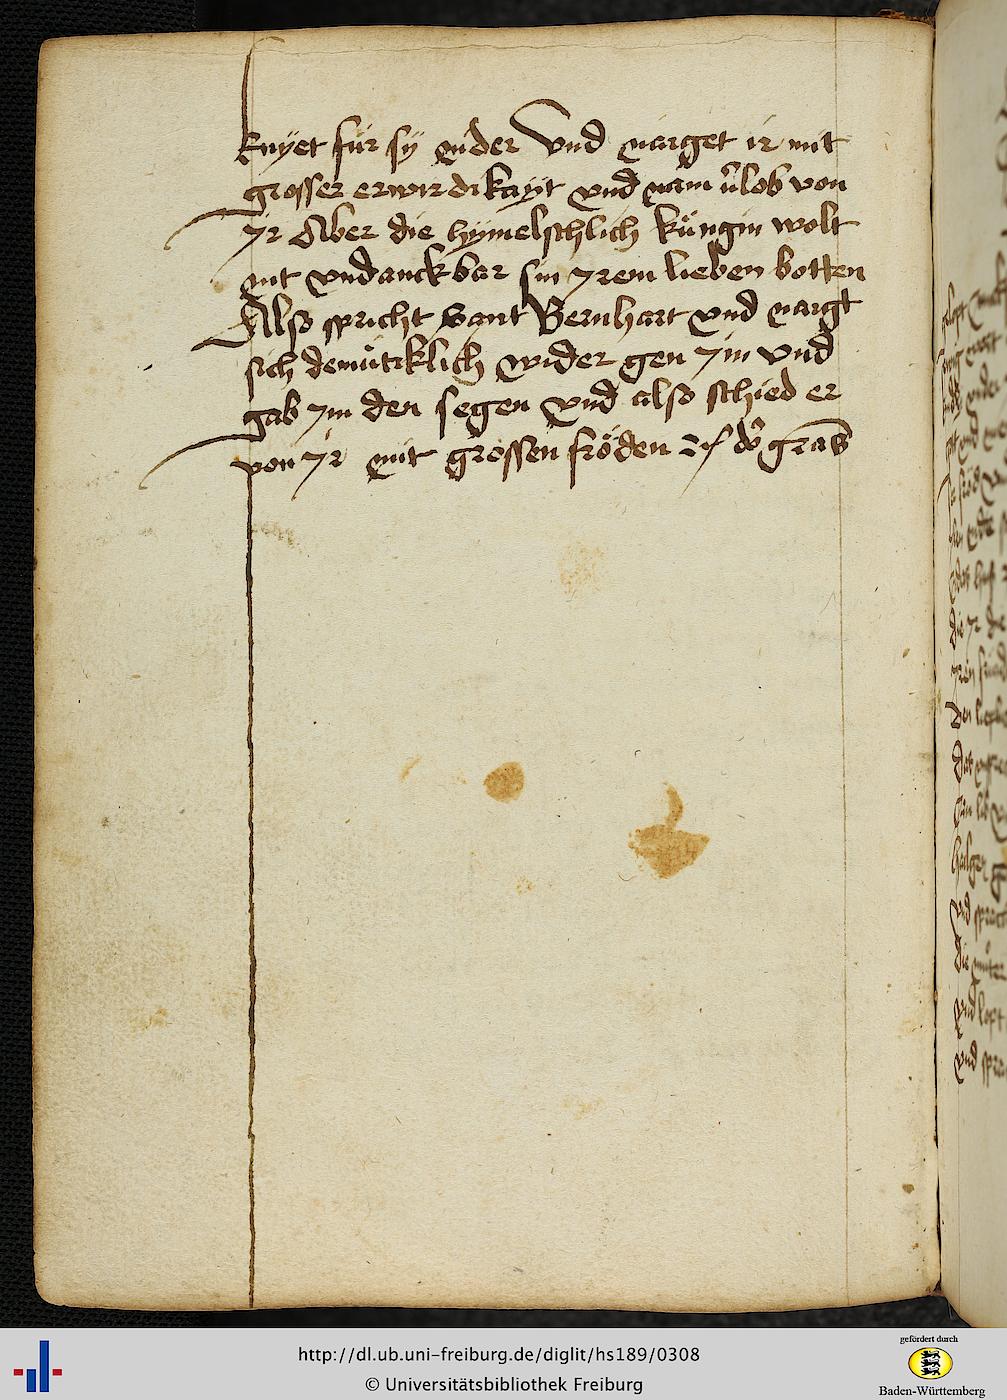 knÿet für sÿ nider Vnd naiget ir mit
grosser erwirdikaÿt vnd nam vͦlob von
ir Aber die hÿmelschlich küngin wolt
nit vndanckbar sin irem lieben botten
Also spricht sant Bernhart vnd naigt
sich demütiklich wider gen im vnd
gab im den segen vnd also schied er
von ir mit grossen fröden
http://dl.ub.uni-freiburg.de/diglit/hs189/0308
© Universitätsbibliothek Freiburg
gefördert durch
Baden-Württemberg